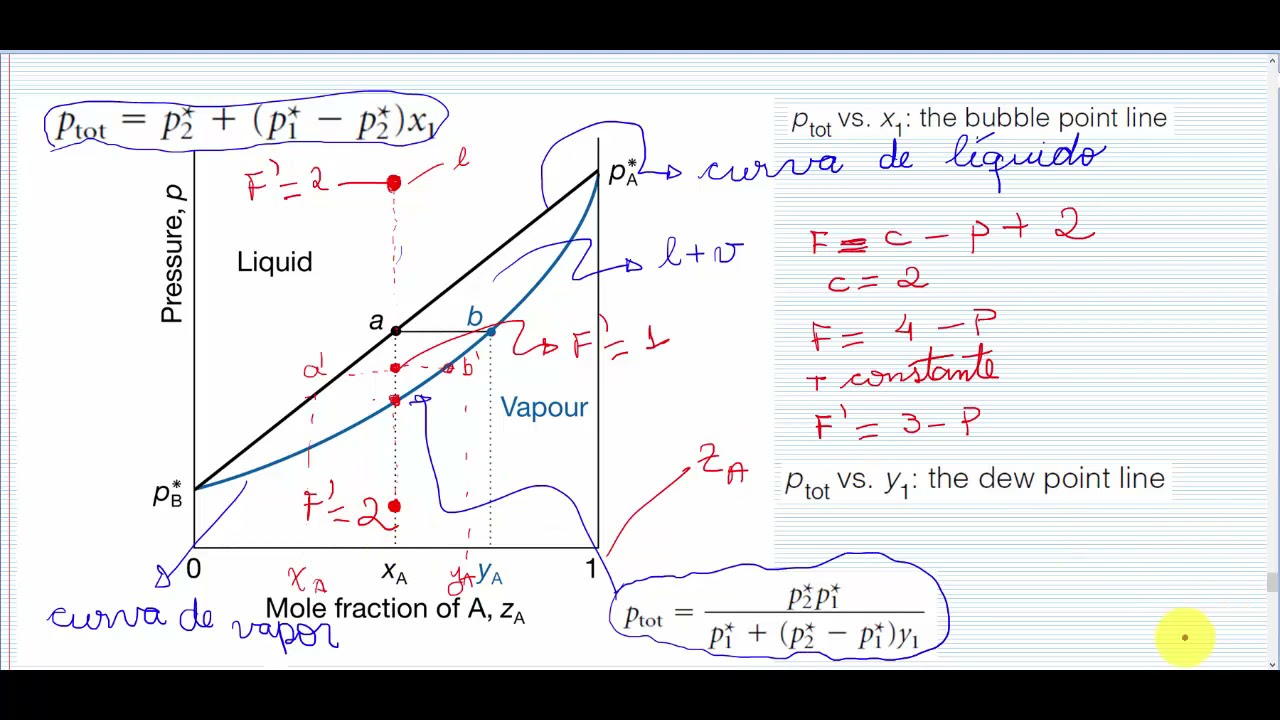 p_tot = p₂* + (p₁* − p₂*)x₁
p_tot vs. x₁: the bubble point line
curva de líquido
p_A*
F' = 2
l
Pressure, p
Liquid
l+v
F = c − p + 2
c = 2
a
b
F' = 1
F = 4 − P
a'
b'
T constante
Vapour
F' = 3 − P
z_A
p_B*
p_tot vs. y₁: the dew point line
F' = 2
0
x_A
x_A
y_A
y_A
1
Mole fraction of A, z_A
curva de vapor
p_tot = p₂* p₁* / p₁* + (p₂* − p₁*)y₁